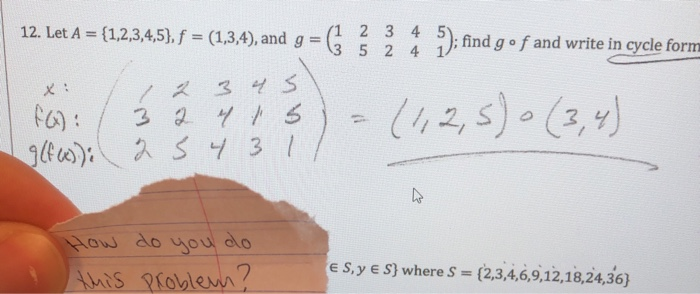 12. Let A = {1,2,3,4,5}, f = (1,3,4), and g = (1 2 3 4 5
3 5 2 4 1); find g ∘ f and write in cycle form
x : 1 2 3 4 5
f(x) : 3 2 4 1 5 = (1,2,5) ∘ (3,4)
g(f(x)): 2 5 4 3 1
How do you do
this problem?
∈ S, y ∈ S} where S = {2,3,4,6,9,12,18,24,36}